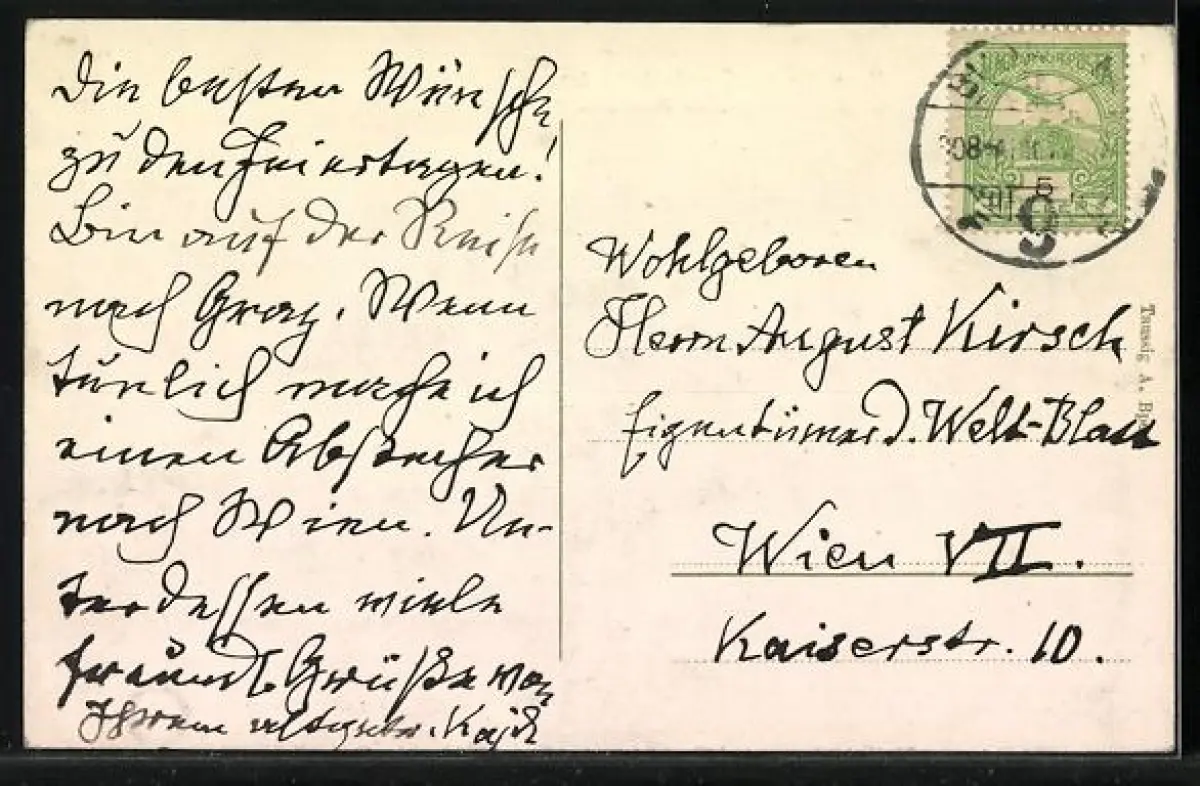 Die besten Wünsche
zu den Feiertagen!
Bin auf der Reise
nach Graz. Wenn
tunlich mache ich
einen Abstecher
nach Wien. Un-
terdessen viele
freundl. Grüße von
Ihrem
Wohlgeboren
Herrn August Kirsch
Eigentümer d. Welt-Blatt
Wien VII.
Kaiserstr. 10.
5
9
Taussig A. Bp